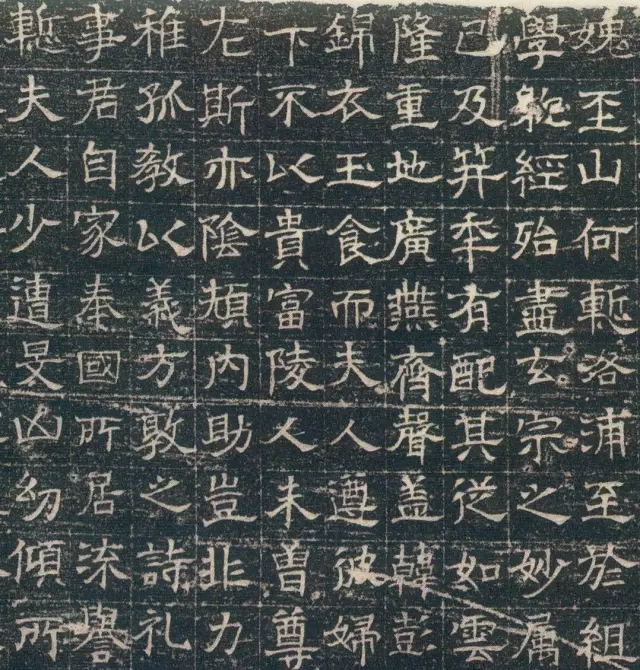 媿巫山何慙洛浦至於組
學經殆盡玄宗之妙属
己及笄年有配其從如雲
隆重地廣燕齊聲盖韓彭
錦衣玉食而夫人遵彼婦
下不以貴富陵人未曽尊
斯亦陰内助豈非力
稚孤教以義方敦之詩礼
事君自家奉國所居流譽
慙夫人少遭旻凶幼傾所